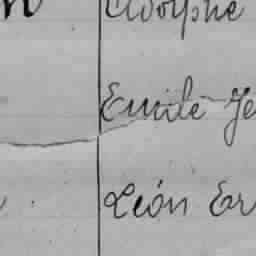 Adolphe
Emile Je
Léon Er